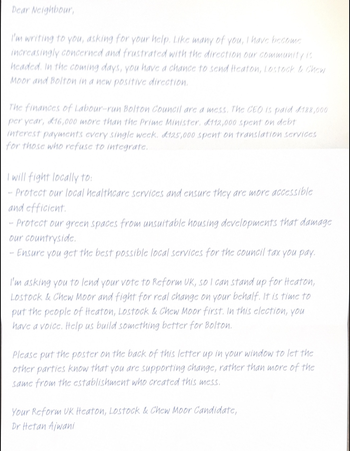 Dear Neighbour,
I'm writing to you, asking for your help. Like many of you, I have become
increasingly concerned and frustrated with the direction our community is
headed. In the coming days, you have a chance to send Heaton, Lostock & Chew
Moor and Bolton in a new positive direction.
The finances of Labour-run Bolton Council are a mess. The CEO is paid
per year, £16,000 more than the Prime Minister. spent on debt
interest payments every single week. spent on translation services
for those who refuse to integrate.
I will fight locally to:
- Protect our local healthcare services and ensure they are more accessible
and efficient.
- Protect our green spaces from unsuitable housing developments that damage
our countryside.
- Ensure you get the best possible local services for the council tax you pay.
I'm asking you to lend your vote to Reform UK, so I can stand up for Heaton,
Lostock & Chew Moor and fight for real change on your behalf. It is time to
put the people of Heaton, Lostock & Chew Moor first. In this election, you
have a voice. Help us build something better for Bolton.
Please put the poster on the back of this letter up in your window to let the
other parties know that you are supporting change, rather than more of the
same from the establishment who created this mess.
Your Reform UK Heaton, Lostock & Chew Moor Candidate,
Dr Hetan Ajwani